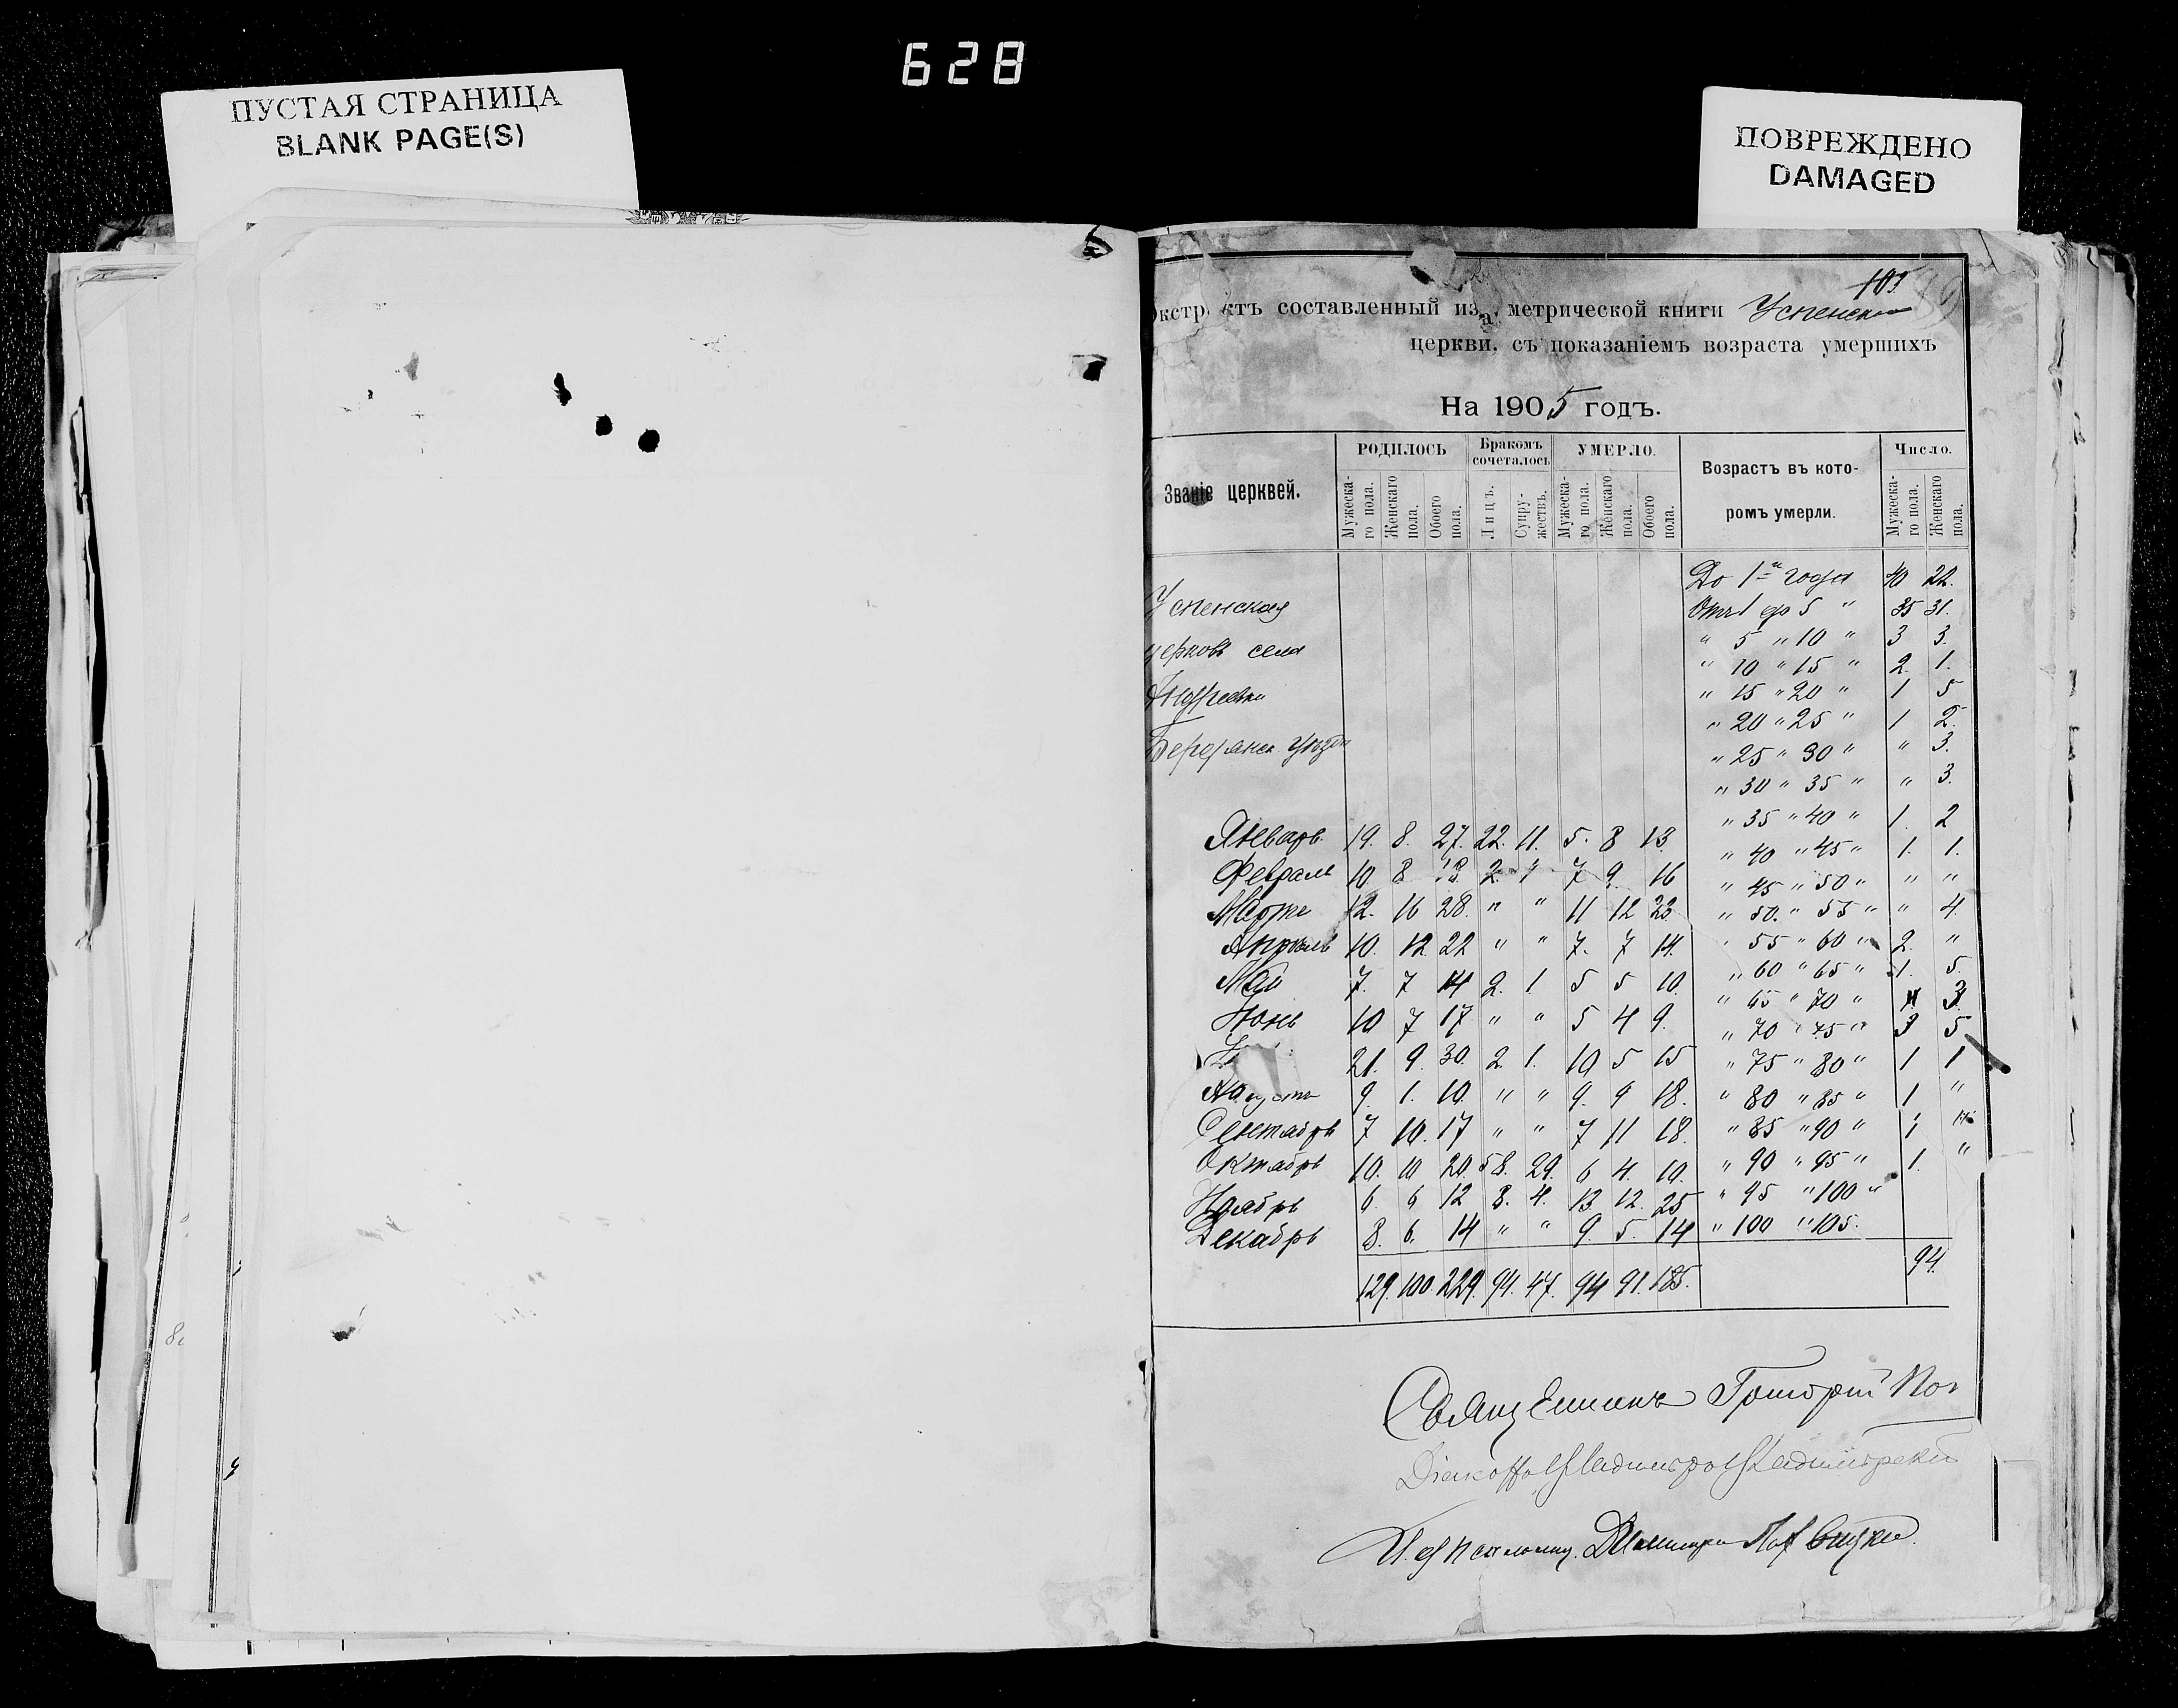 628
ПУСТАЯ СТРАНИЦА
BLANK PAGE(S)
ПОВРЕЖДЕНО
DAMAGED
103
Экстрактъ составленный изъ метрической книги Успенской
церкви, съ показаніемъ возраста умершихъ
На 1905 годъ.
Званіе церквей.
РОДИЛОСЬ
Бракомъ сочеталось
УМЕРЛО.
Возрастъ въ которомъ умерли.
Число.
Мужеска-го пола.
Женскаго пола.
Обоего пола.
Лицъ.
Супружествъ.
Мужеска-го пола.
Женскаго пола.
Обоего пола.
Мужеска-го пола.
Женскаго пола.
Успенская
церковь села
Андреевки
Бердянск. уѣзда
До 1го года 40 22.
Отъ 1 до 5 " 35 31.
" 5 " 10 " 3 3.
" 10 " 15 " 2. 1.
" 15 " 20 " 1 5
" 20 " 25 " 1 2.
" 25 " 30 " " 3.
" 30 " 35 " " 3.
" 35 " 40 " 1. 2
" 40 " 45 " 1. 1.
" 45 " 50 " " "
" 50. " 55 " " 4.
" 55 " 60 " 2. "
" 60 " 65 " 1. 5.
" 65 " 70 " 3.
" 70 " 75 " 3 5
" 75 " 80 " 1 1
" 80 " 85 " 1 "
" 85 " 90 " 1 "
" 90 " 95 " 1. "
" 95 " 100 "
" 100 " 105.
94.
Январь. 19. 8. 27. 22. 11. 5. 8 13.
Февраль 10 8 18. 2. 1 7 9. 16
Мартъ 12. 16 28. " " 11 12 23.
Апрѣль 10. 12. 22 " " 7. 7 14.
Май 7. 7 14 2. 1. 5 5 10.
Іюнь 10 7 17 " " 5 4 9.
21. 9. 30. 2. 1. 10 5 15
Августъ 9. 1. 10. " " 9. 9 18.
Сентябрь 7 10. 17 " " 7 11 18.
Октябрь 10. 10 20. 58. 29. 6 4. 10.
Ноябрь 6. 6 12 8. 4. 13. 12. 25
Декабрь 8. 6. 14 " " 9. 5. 14
129. 100. 229. 94. 47. 94 91. 185.
Священникъ Григорій
Псаломщ. Димитрій